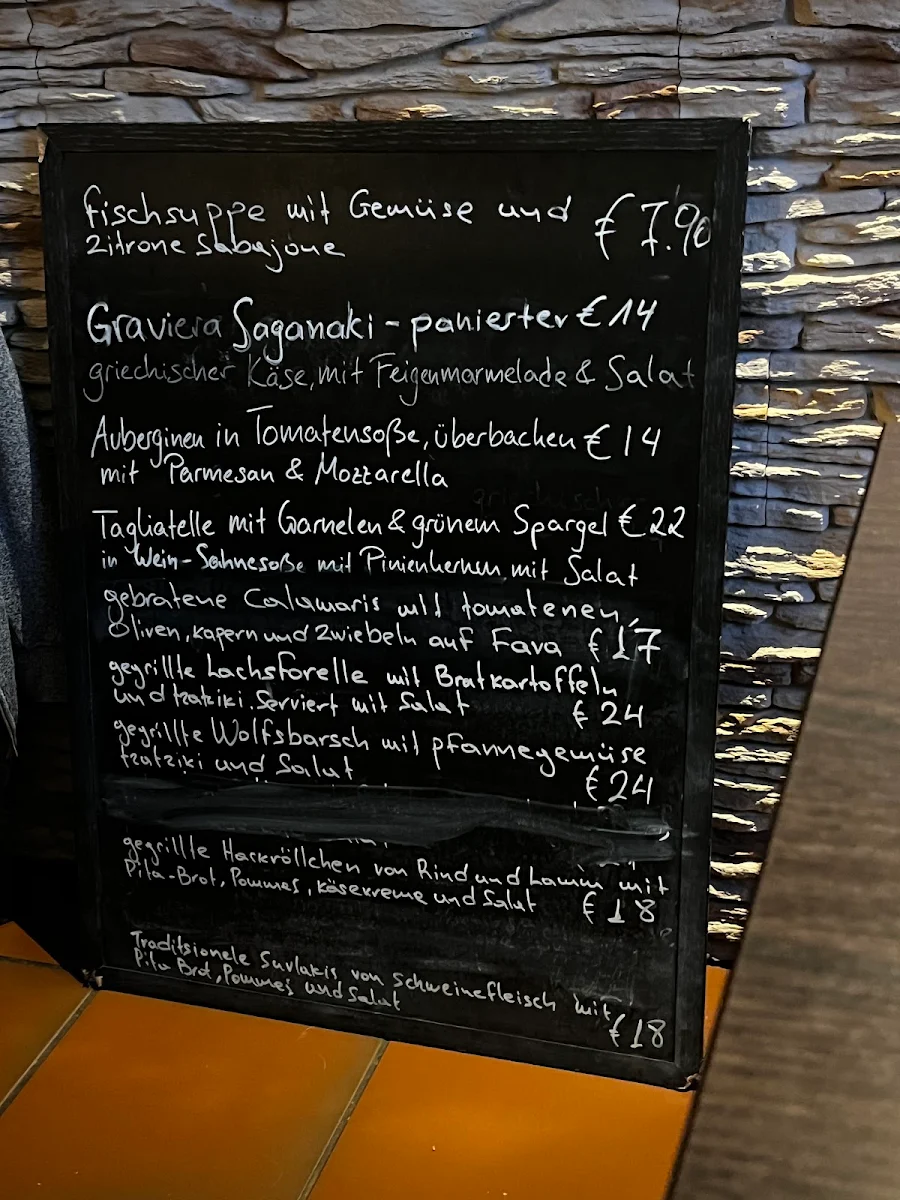 Fischsuppe mit Gemüse und € 7.90
Zitrone Sabajone
Graviera Saganaki - panierter € 14
griechischer Käse, mit Feigenmarmelade & Salat
Auberginen in Tomatensoße, überbacken € 14
mit Parmesan & Mozzarella
Tagliatelle mit Garnelen & grünem Spargel € 22
in Wein-Sahnesoße mit Pinienkernen mit Salat
gebratene Calamaris mit tomatenen,
Oliven, kapern und Zwiebeln auf Fava € 17
gegrillte Lachsforelle mit Bratkartoffeln
und tzatziki. Serviert mit Salat € 24
gegrillte Wolfsbarsch mit pfannegemüse
tzatziki und Salat € 24
gegrillte Hackröllchen von Rind und Lamm mit
Pita-Brot, Pommes, käsekreme und Salat € 18
Traditsionele Suvlakis von Schweinefleisch mit
Pita Brot, Pommes und Salat € 18